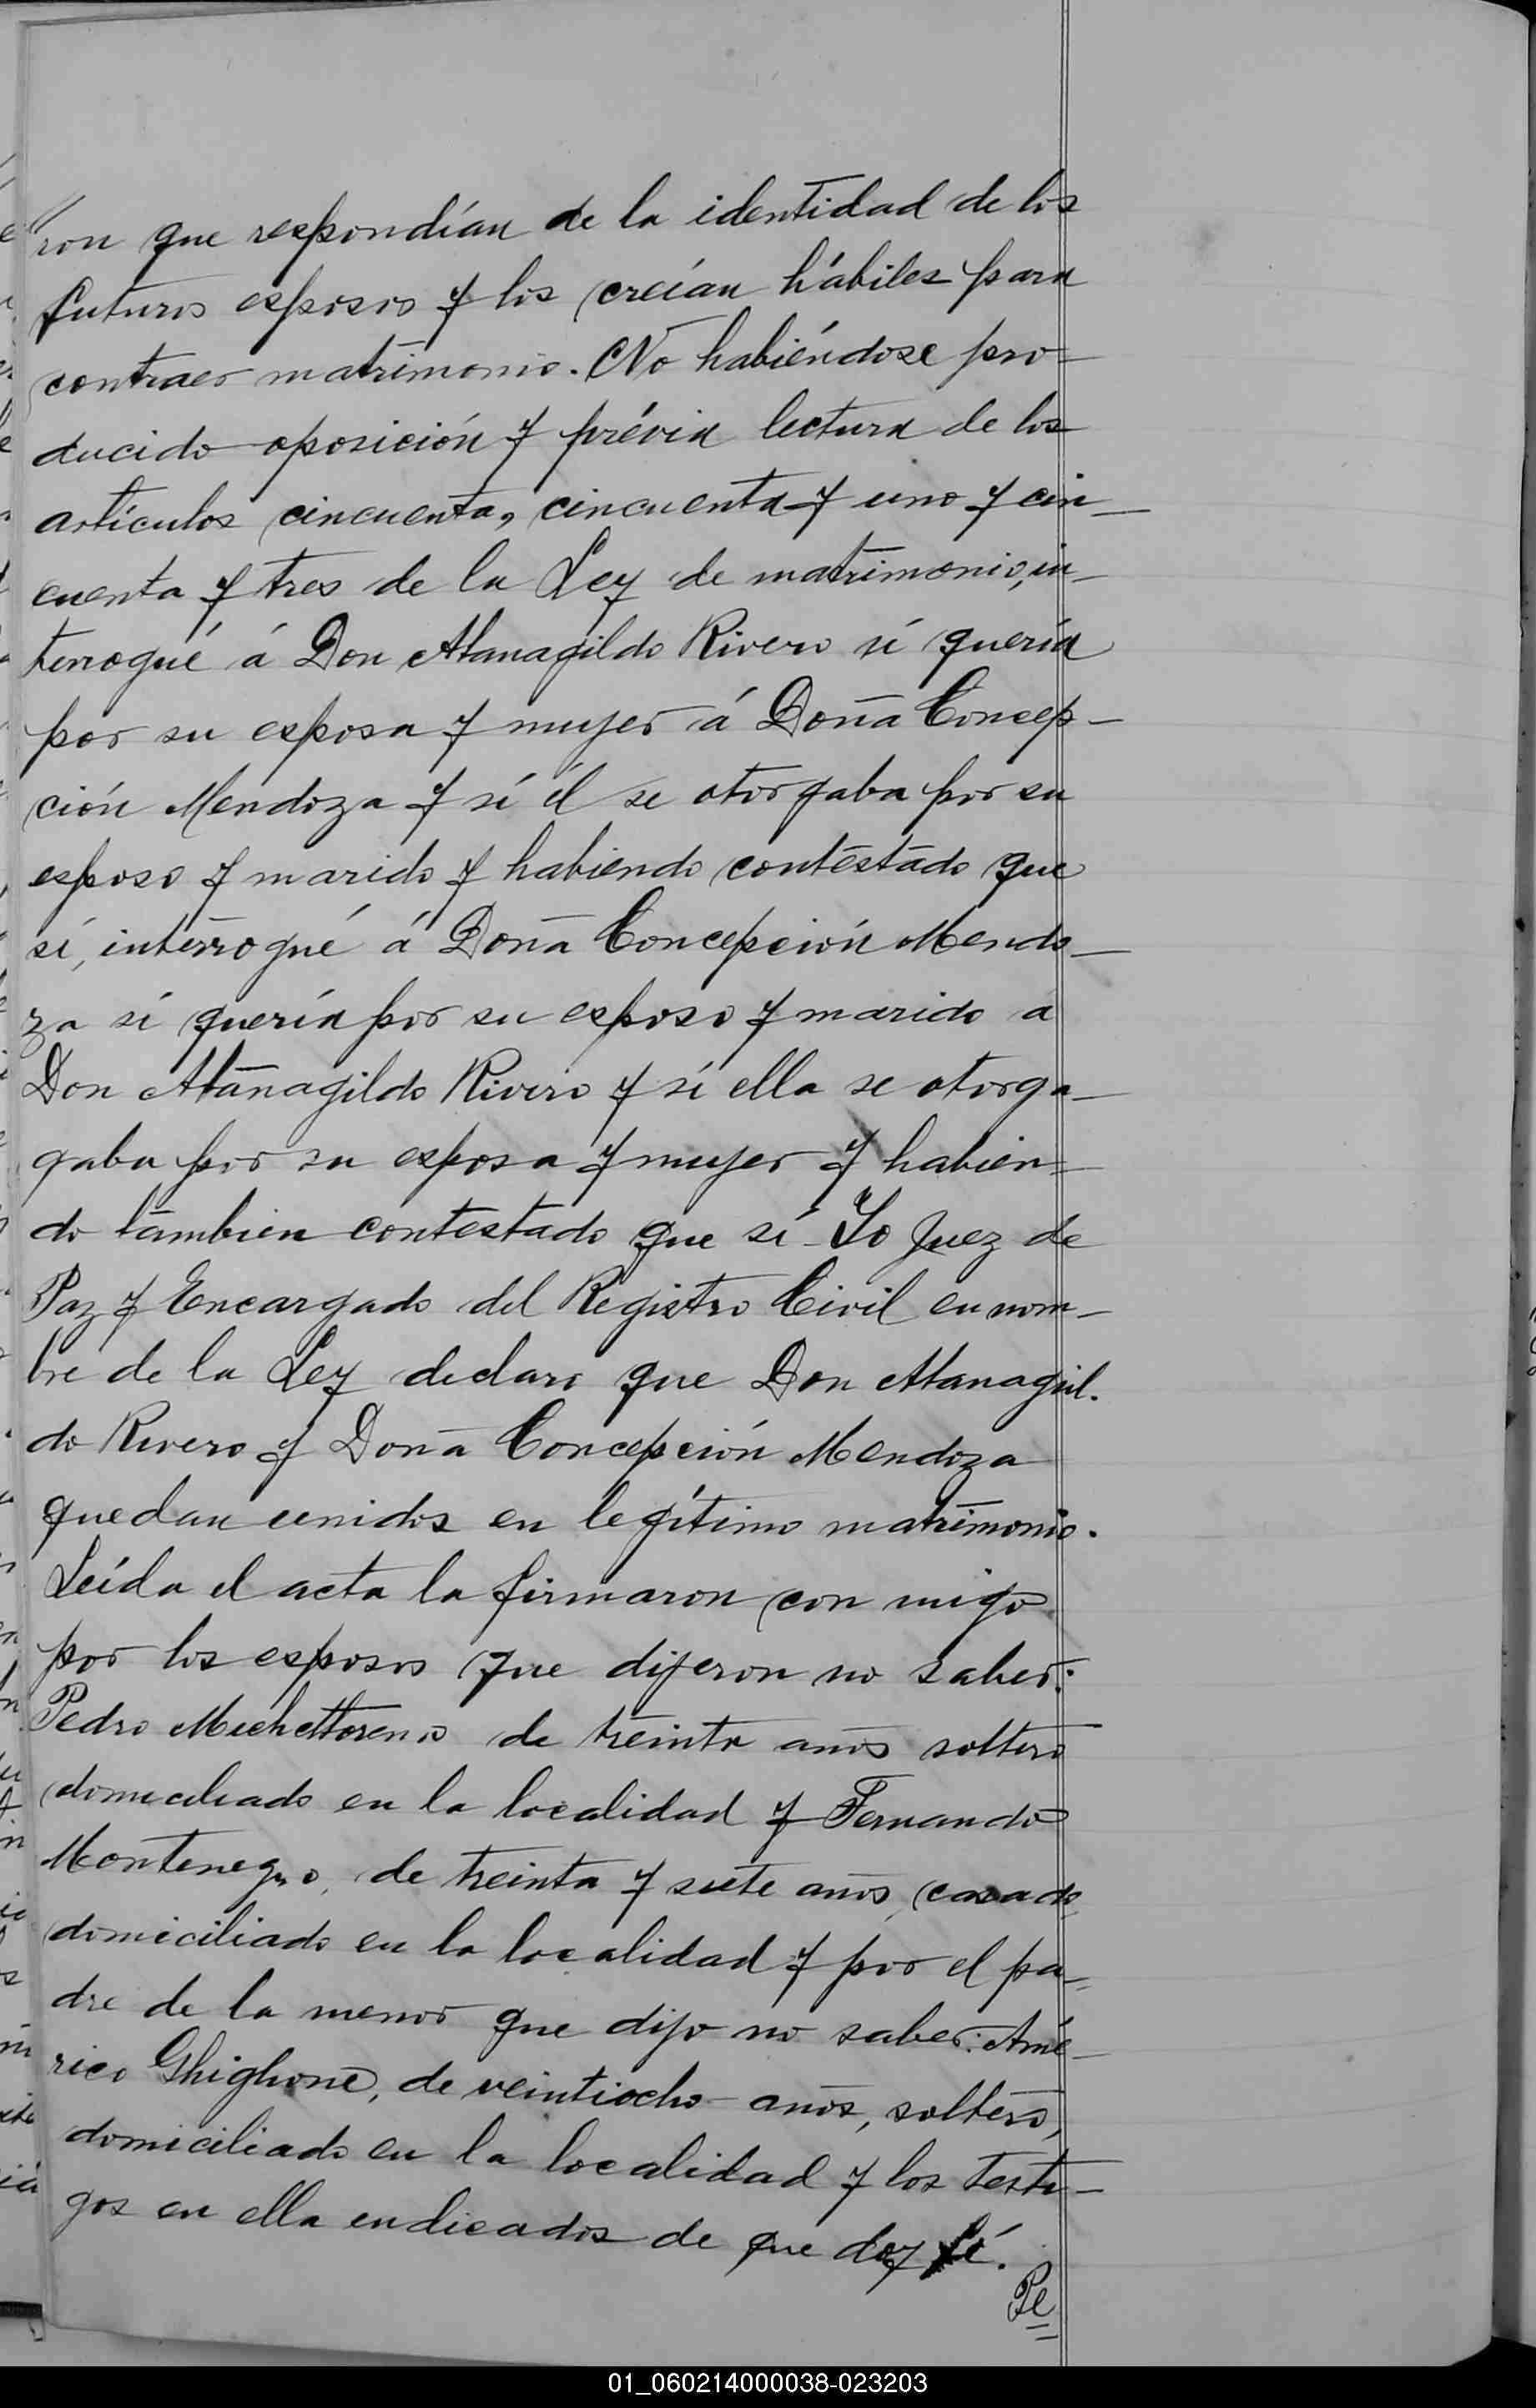 "ron que respondían de la identidad de los
futuros esposos y los creían hábiles para
contraer matrimonio. No habiéndose pro-
ducido oposición y prévia lectura de los
artículos cincuenta, cincuenta y uno y cin-
cuenta y tres de la Ley de matrimonio, in-
terrogué á Don Atanagildo Rivero sí quería
por su esposa y mujer á Doña Concep-
ción Mendoza y sí él se otorgaba por su
esposo y marido y habiendo contestado que
sí, interrogué á Doña Concepción Mendo-
za sí quería por su esposo y marido a
Don Atanagildo Rivero y sí ella se otorga-
gaba por su esposa y mujer y habien-
do tambien contestado que sí Yo Juez de
Paz y Encargado del Registro Civil en nom-
bre de la Ley declaro que Don Atanagil.
do Rivero y Doña Concepción Mendoza
quedan unidos en legítimo matrimonio.
Leída el acta la firmaron con migo
por los esposos que dijeron no saber:
Pedro de treinta años soltero
domiciliado en la localidad y Fernando
Montenegro, de treinta y siete años, casado,
domiciliado en la localidad y por el pa-
dre de la menor que dijo no saber: Amé-
rico Ghighone, de veintiocho años, soltero,
domiciliado en la localidad y los testi-
gos en ella indicados de que doy fé.
Pe
01_060214000038-023203